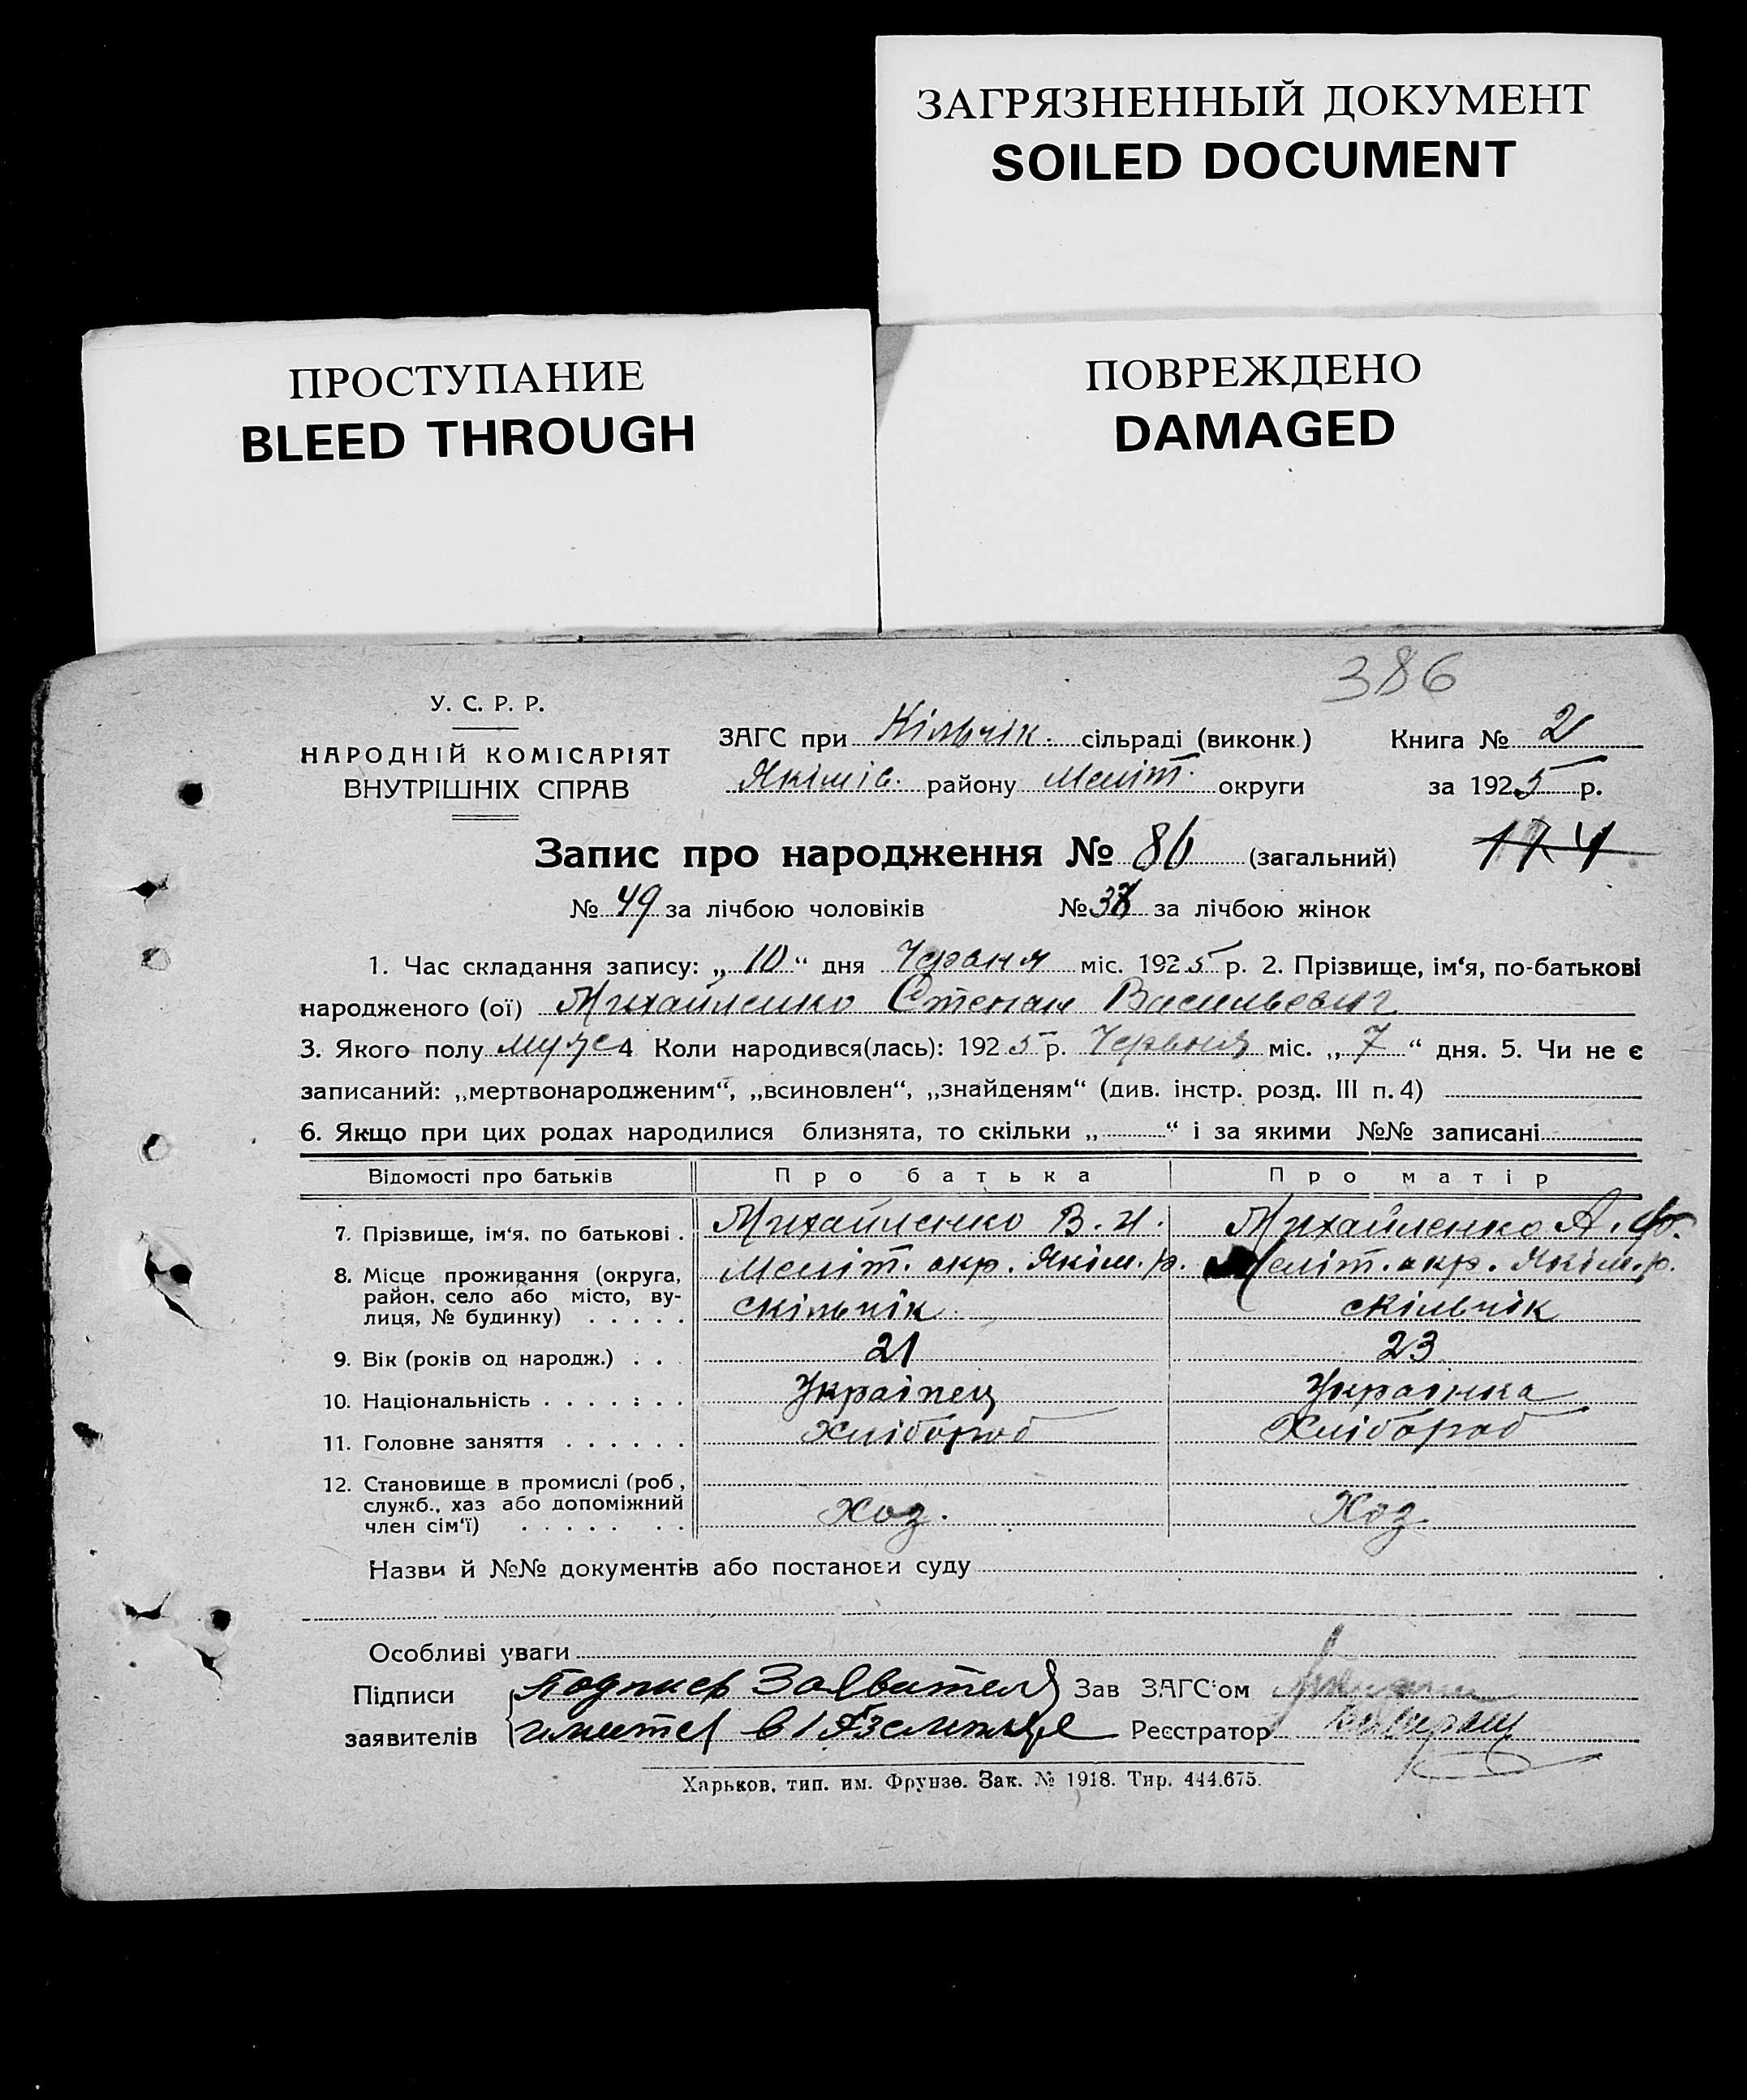 ЗАГРЯЗНЕННЫЙ ДОКУМЕНТ
SOILED DOCUMENT
ПРОСТУПАНИЕ
BLEED THROUGH
ПОВРЕЖДЕНО
DAMAGED
386
У. С. Р. Р.
НАРОДНІЙ КОМІСАРІЯТ
ВНУТРІШНІХ СПРАВ
ЗАГС при Кільчік. сільраді (виконк.) Книга № 2
Якімів. району Меліт. округи за 1925 р.
Запис про народження № 86 (загальний) 174
№ 49 за лічбою чоловіків № за лічбою жінок
1. Час складання запису: „ 10 “ дня міс. 1925 р. 2. Прізвище, ім‘я, по-батькові
народженого (ої) Михайленко Степан Васильевич
3. Якого полу муже 4 Коли народився(лась): 1925 р. Червня міс. „ 7 “ дня. 5. Чи не є
записаний: „мертвонародженим“, „всиновлен“, „знайденям“ (див. інстр. розд. III п. 4)
6. Якщо при цих родах народилися близнята, то скільки „ “ і за якими №№ записані
Відомості про батьків Про батька Про матір
7. Прізвище, ім‘я, по батькові . Михайленко В. И. Михайленко А. Ф.
8. Місце проживання (округа, район, село або місто, вулиця, № будинку) . . . . . Меліт. окр. Якім. р. Меліт. окр. Якім. р.
с Кільчік с Кільчік
9. Вік (років од народж.) . . 21 23
10. Національність . . . . : . . Украінец Украінка
11. Головне заняття . . . . . . Хлібороб Хлібороб
12. Становище в промислі (роб., служб., хаз або допоміжний член сім‘ї) . . . . . . . Хоз. Хоз.
Назви й №№ документів або постанови суду
Особливі уваги
Підписи Подпись Заявителя Зав ЗАГС‘ом
заявителів имется в Реєстратор
Харьков, тип. им. Фрунзе. Зак. № 1918. Тир. 444.675.